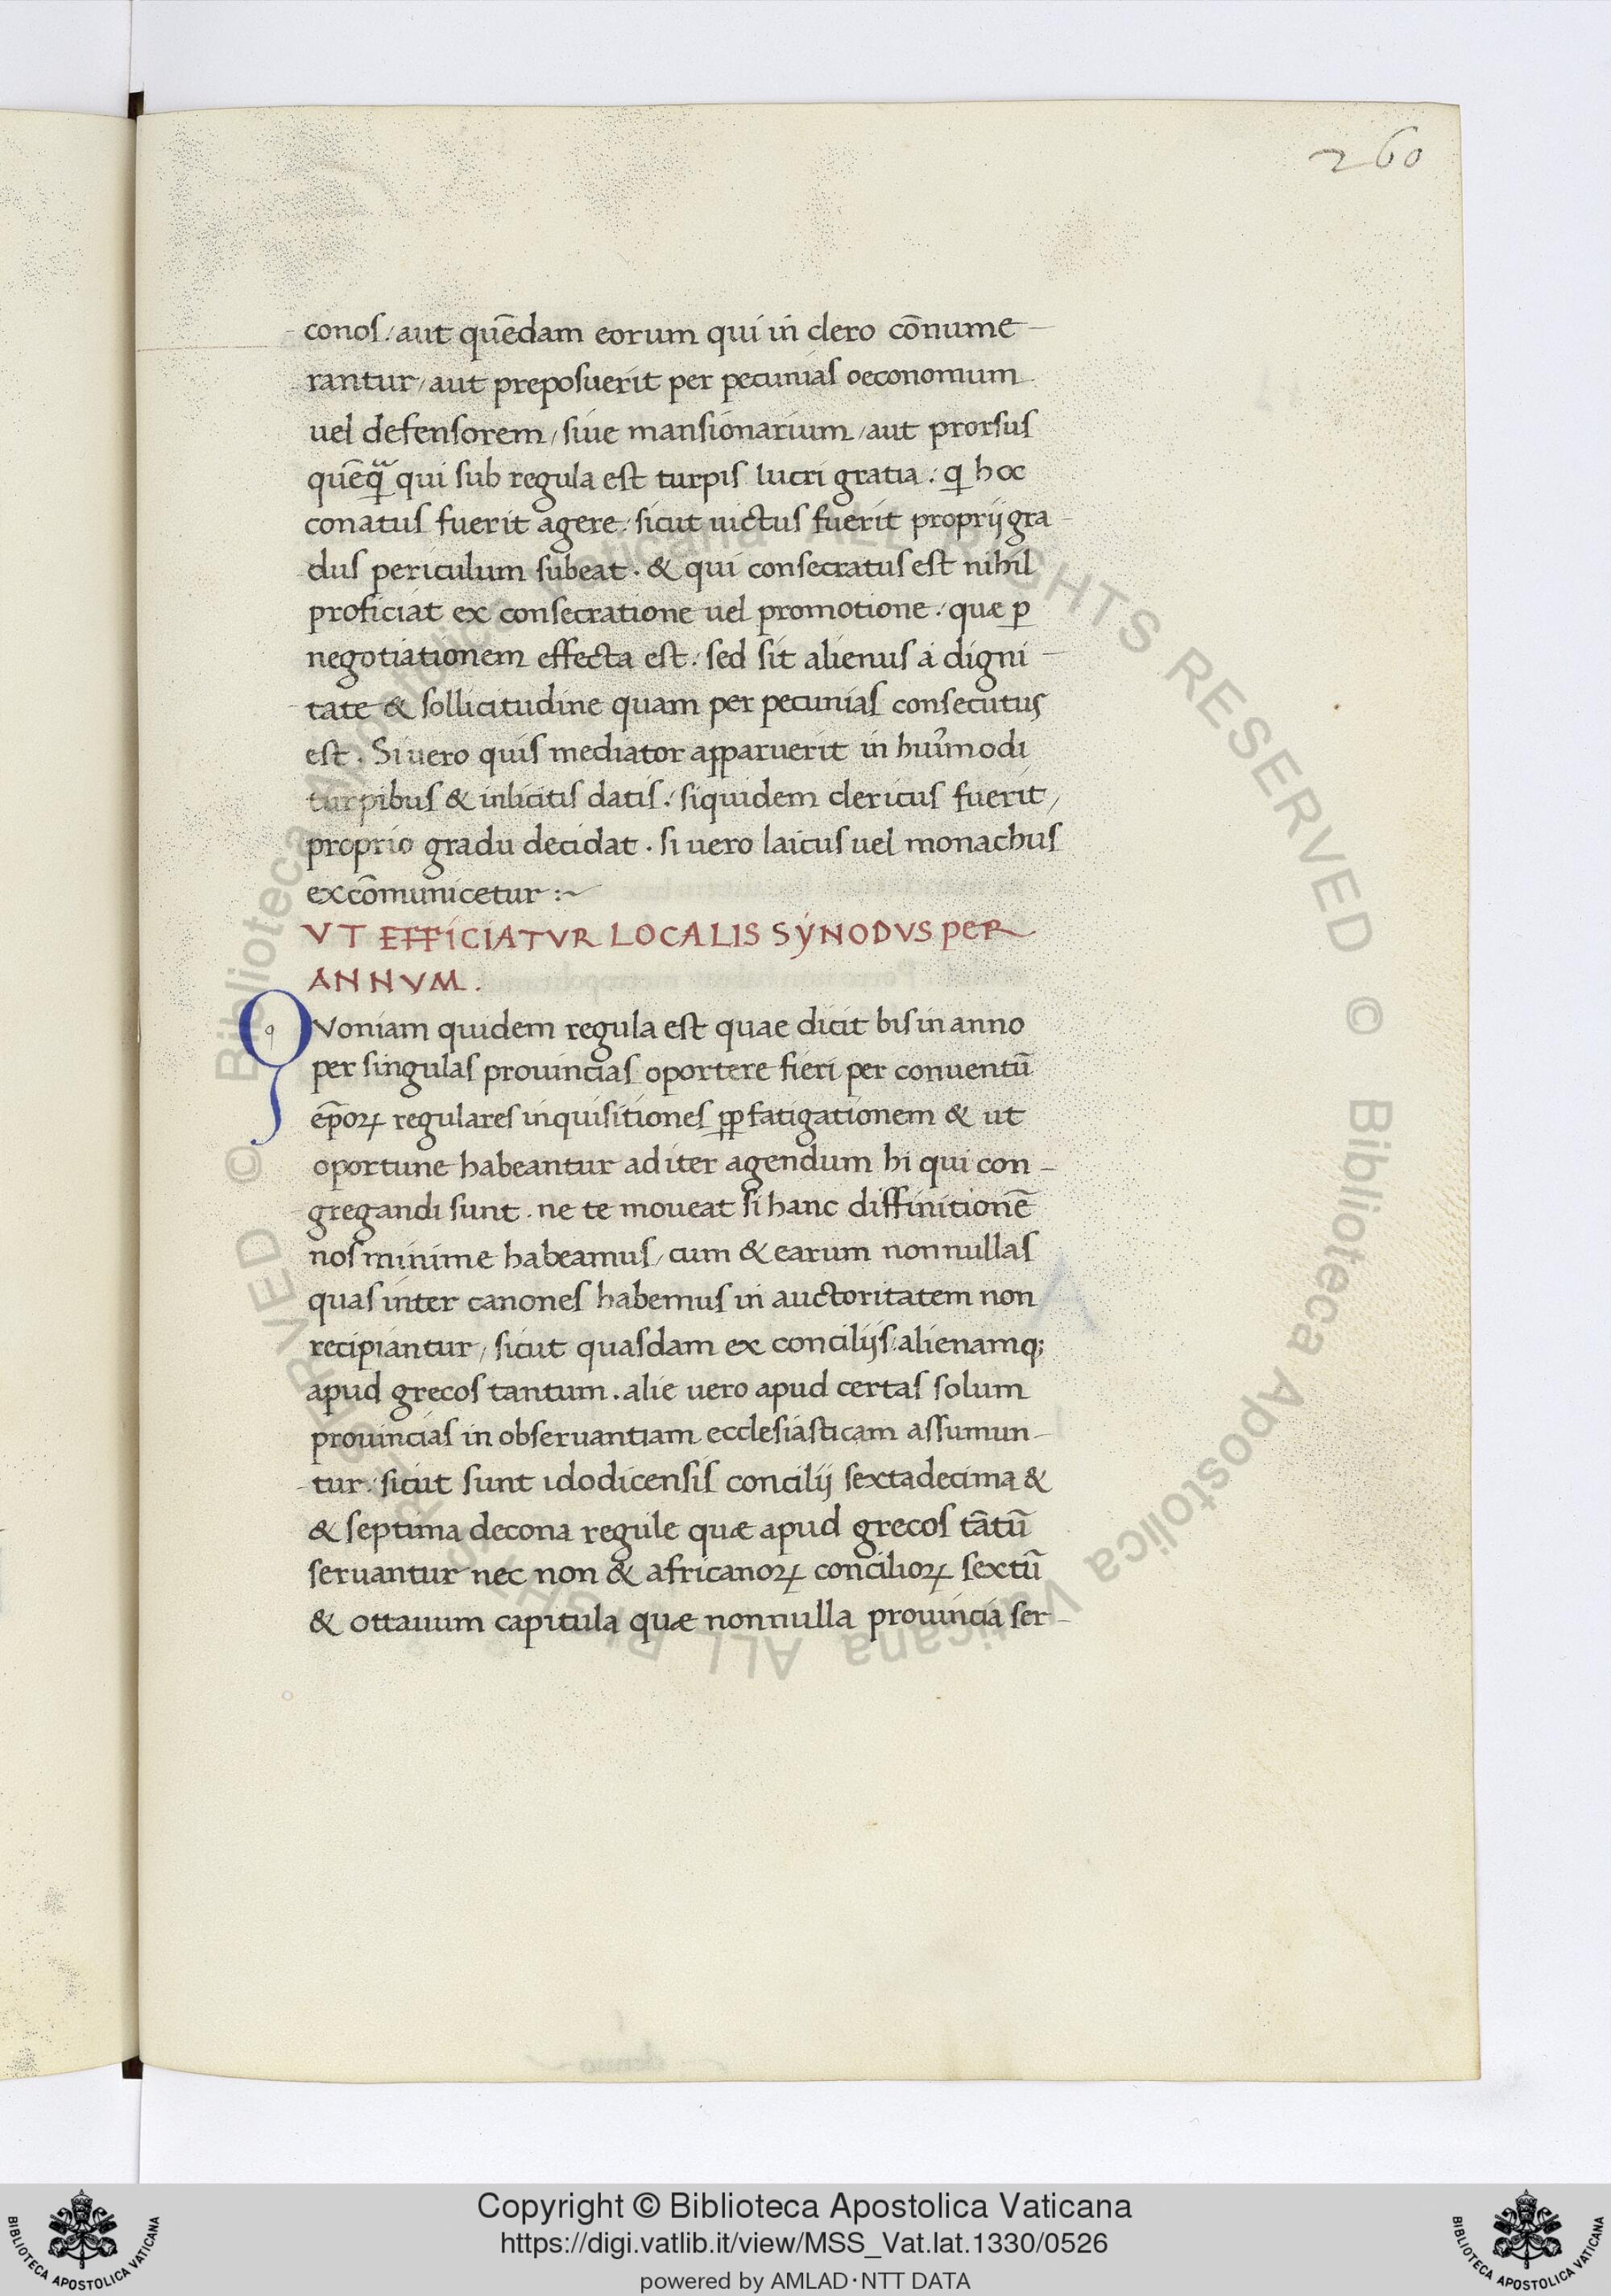 260
conos / aut quēdam eorum qui in clero cōnume-
rantur / aut preposuerit per pecunias oeconomum
uel defensorem / siue mansionarium / aut prorsus
quēqͣꝫ qui sub regula est turpis lucri gratia : qͥ hoc
conatus fuerit agere : sicut uictus fuerit proprij gra-
dus periculum subeat . & qui consecratus est nihil
proficiat ex consecratione uel promotione : quæ ꝑ
negotiationem effecta est : sed sit alienus a digni-
tate & sollicitudine quam per pecunias consecutus
est . Si uero quis mediator apparuerit in huiͥmodi
turpibus & inlicitis datis : siquidem clericus fuerit /
proprio gradu decidat . si uero laicus uel monachus
excōmunicetur :~
VT EFFICIATVR LOCALIS SYNODVS PER
ANNVM .
QVoniam quidem regula est quae dicit bis in anno
per singulas prouincias oportere fieri per conuentū
ep̄oꝝ regulares inquisitiones ꝓꝑ fatigationem & ut
oportune habeantur ad iter agendum hi qui con-
gregandi sunt . ne te moueat si hanc diffinitionē
nos minime habeamus / cum & earum nonnullas
quas inter canones habemus in auctoritatem non
recipiantur / sicut quasdam ex concilijs / alienamq;
apud grecos tantum . alie uero apud certas solum
prouincias in obseruantiam ecclesiasticam assumun-
tur : sicut sunt idodicensis concilij sextadecima &
& septima decona regule quæ apud grecos tātū
seruantur nec non & africanoꝝ concilioꝝ sextū
& ottauum capitula quæ nonnulla prouincia ser-
© Biblioteca Apostolica Vaticana ALL RIGHTS RESERVED © Biblioteca Apostolica Vaticana ALL RIGHTS RESERVED
Copyright © Biblioteca Apostolica Vaticana
https://digi.vatlib.it/view/MSS_Vat.lat.1330/0526
powered by AMLAD·NTT DATA
BIBLIOTECA APOSTOLICA VATICANA
BIBLIOTECA APOSTOLICA VATICANA